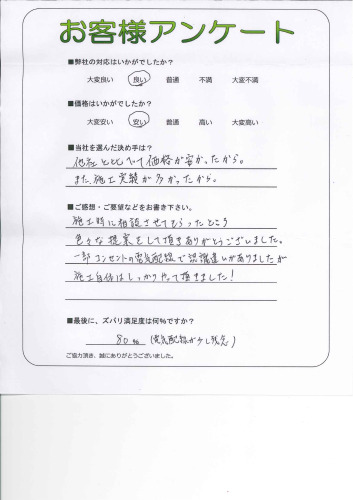 お客様アンケート
■弊社の対応はいかがでしたか？
大変良い　良い　普通　不満　大変不満
■価格はいかがでしたか？
大変安い　安い　普通　高い　大変高い
■当社を選んだ決め手は？
他社とくらべて価格が安かったから。
また、施工実績が多かったから。
■ご感想・ご要望などをお書き下さい。
施工時に相談させてもらったところ
色々な提案をして頂きありがとうございました。
一部コンセントの電気配線で認識違いがありましたが
施工自体はしっかりやって頂きました！
■最後に、ズバリ満足度は何％ですか？
80％（電気配線が少し残念）
ご協力頂き、誠にありがとうございました。